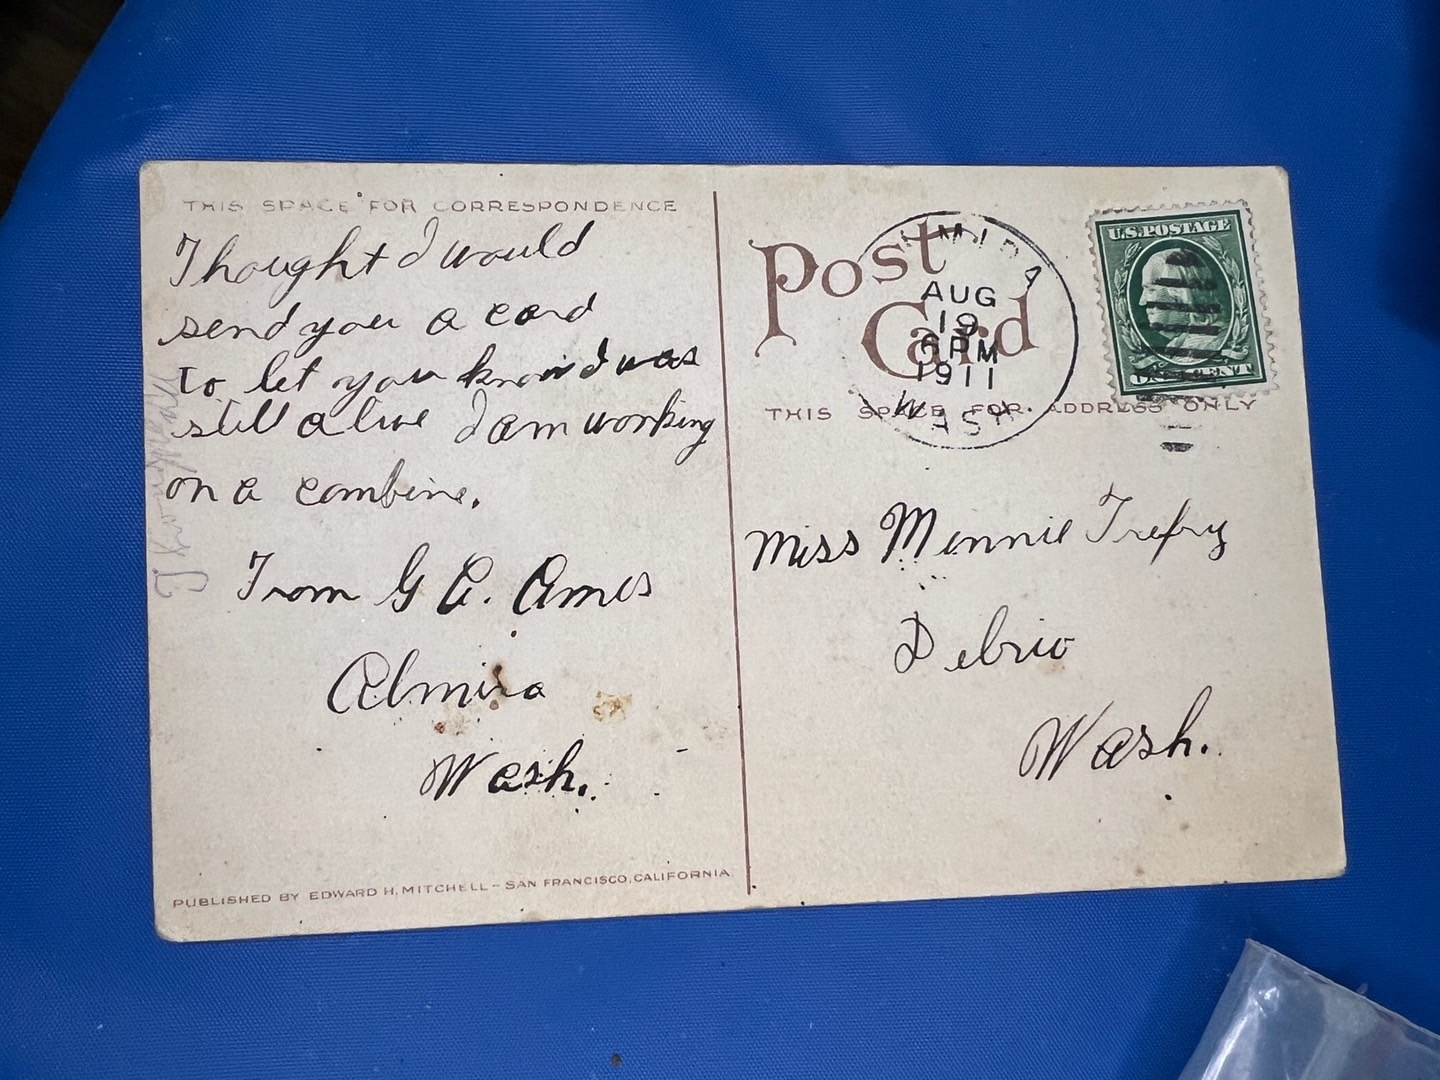 THIS SPACE FOR CORRESPONDENCE
Thought I would
send you a card
to let you know I was
still alive I am working
on a combine.
From G E. Ames
Almira
Wash.
PUBLISHED BY EDWARD H. MITCHELL – SAN FRANCISCO, CALIFORNIA
Post
Card
AUG
19
6 PM
1911
WASH.
U.S. POSTAGE
ONE CENT
THIS SPACE FOR ADDRESS ONLY
Miss Minnie Trefry
Delrio
Wash.